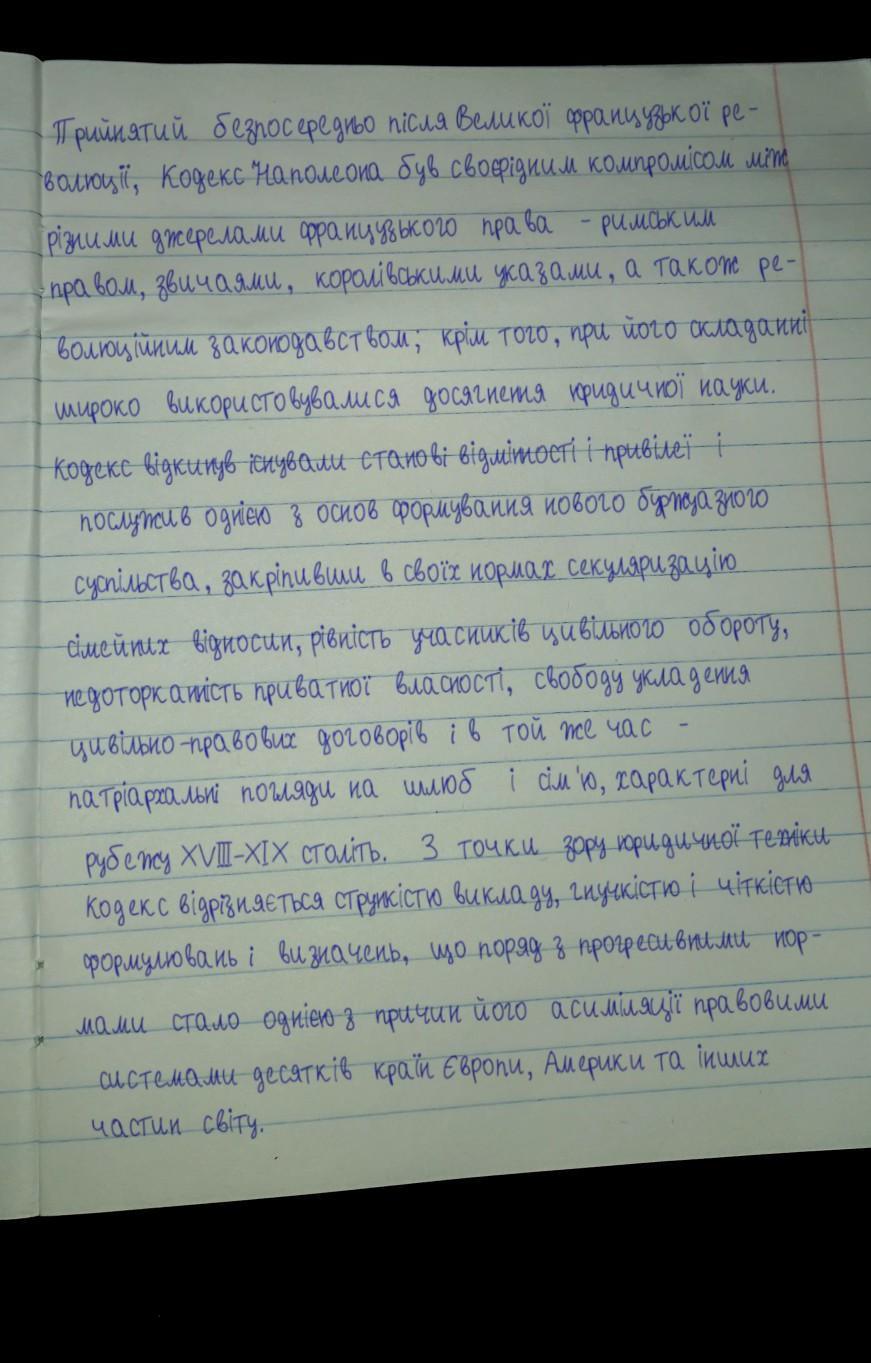 Прийнятий безпосередньо після Великої французької ре-
волюції, Кодекс Наполеона був своєрідним компромісом між
різними джерелами французького права - римським
правом, звичаями, королівськими указами, а також ре-
волюційним законодавством; крім того, при його складанні
широко використовувалися досягнення юридичної науки.
Кодекс відкинув існували станові відмітності і привілеї і
послужив однією з основ формування нового буржуазного
суспільства, закріпивши в своїх нормах секуляризацію
сімейних відносин, рівність учасників цивільного обороту,
недоторканність приватної власності, свободу укладення
цивільно-правових договорів і в той же час -
патріархальні погляди на шлюб і сім'ю, характерні для
рубежу XVIII-XIX століть. З точки зору юридичної техніки
Кодекс відрізняється стрункістю викладу, гнучкістю і чіткістю
формулювань і визначень, що поряд з прогресивними нор-
мами стало однією з причин його асиміляції правовими
системами десятків країн Європи, Америки та інших
частин світу.